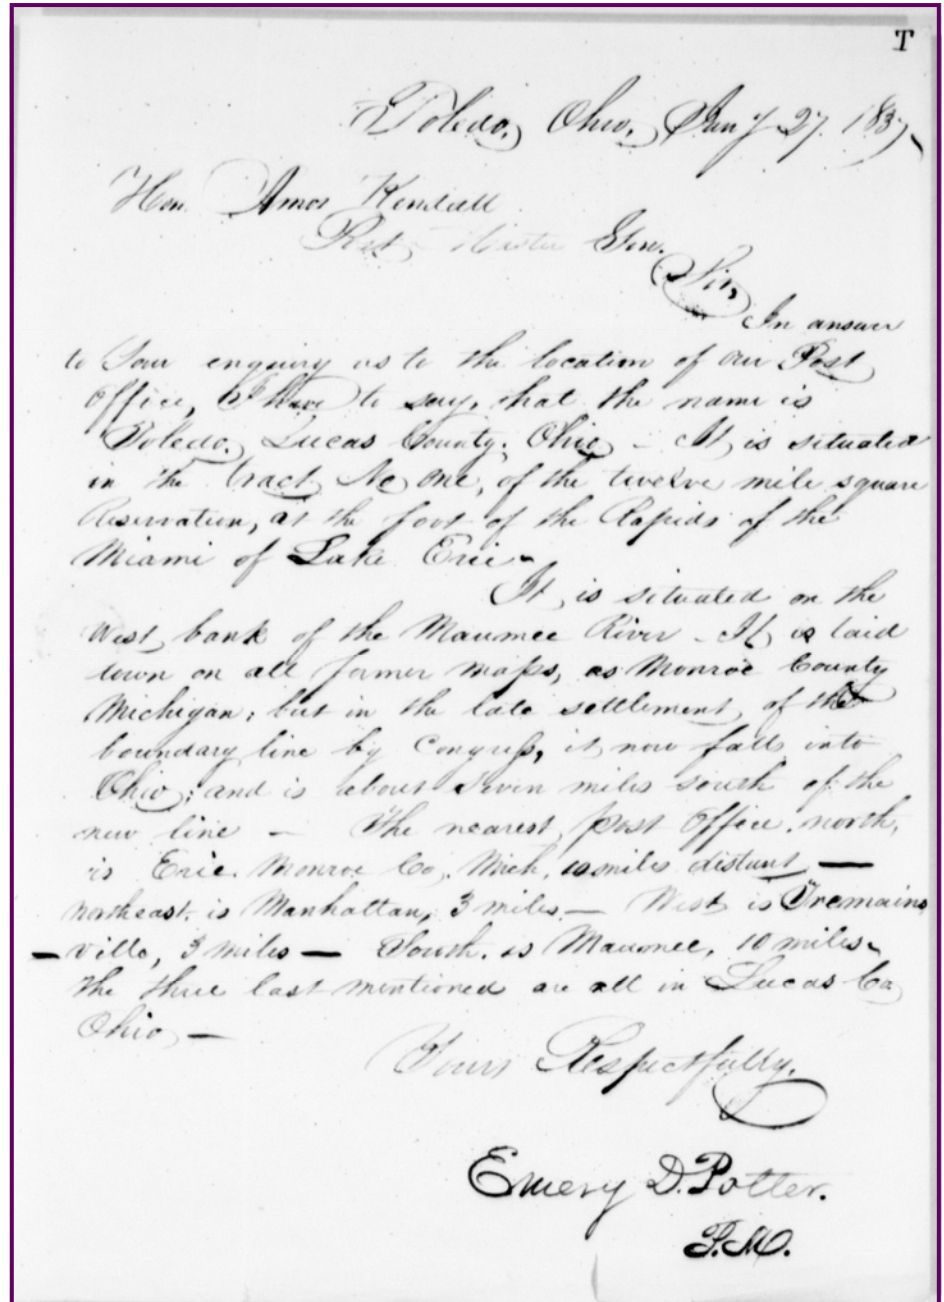 T
Toledo, Ohio, Jany 27. 1837,
Hon. Amos Kendall
Post Master Gen.
Sir,
In answer
to Your enquiry as to the location of our Post
Office, I have to say, that the name is
Toledo, Lucas County, Ohio – It is situated
in the tract No one, of the twelve mile square
Reservation, at the foot of the Rapids of the
Miami of Lake Erie –
It is situated on the
West bank of the Maumee River – It is laid
down on all former maps, as Monroe County
Michigan; but in the late settlement of the
boundary line by Congress, it now falls into
Ohio; and is about seven miles south of the
new line – The nearest post Office north,
is Erie. Monroe Co. Mich. 10 miles distant —
Northeast is Manhattan, 3 miles. — West is Tremains
– ville, 3 miles — South. is Maumee, 10 miles.
The three last mentioned are all in Lucas Co
Ohio, —
Yours Respectfully,
Emery D. Potter.
P.M.